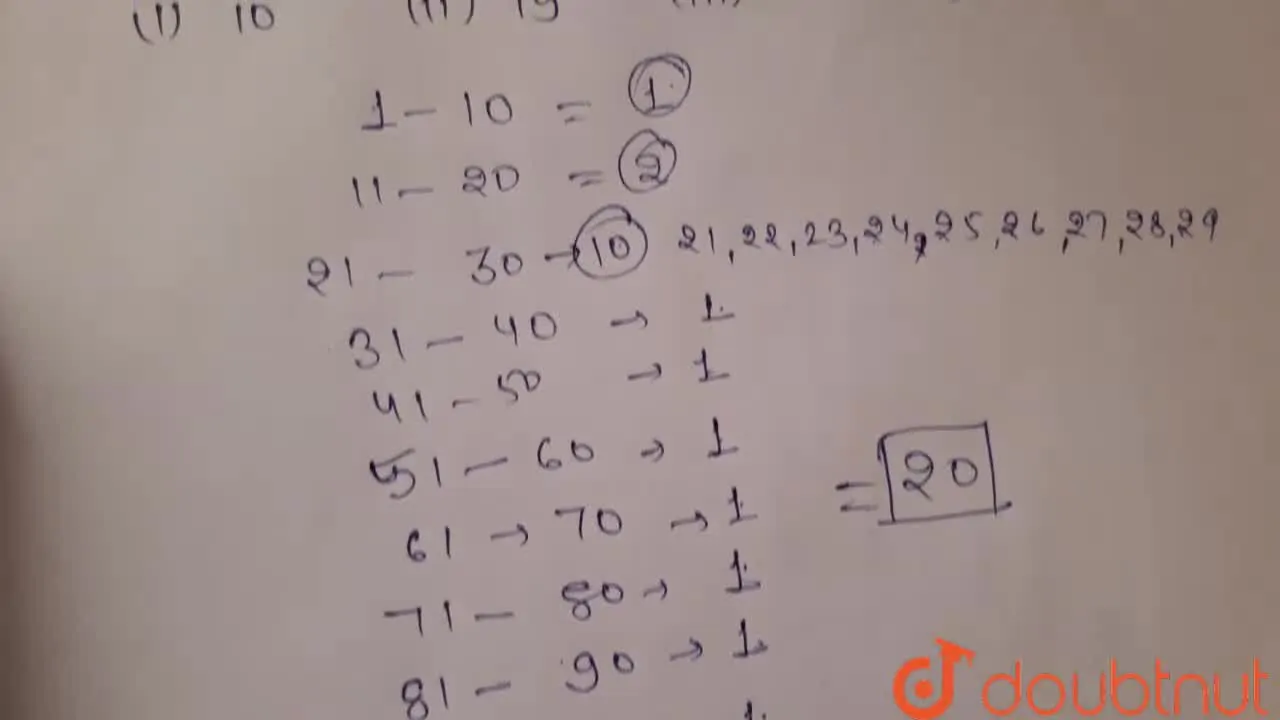 (I) 10 (II) 19 (III)
1 - 10 = 1
11 - 20 = 2
21 - 30 → 10 21, 22, 23, 24, 25, 26, 27, 28, 29
31 - 40 → 1
41 - 50 → 1
51 - 60 → 1
= 20
61 → 70 → 1
71 - 80 → 1
81 - 90 → 1
1
doubtnut